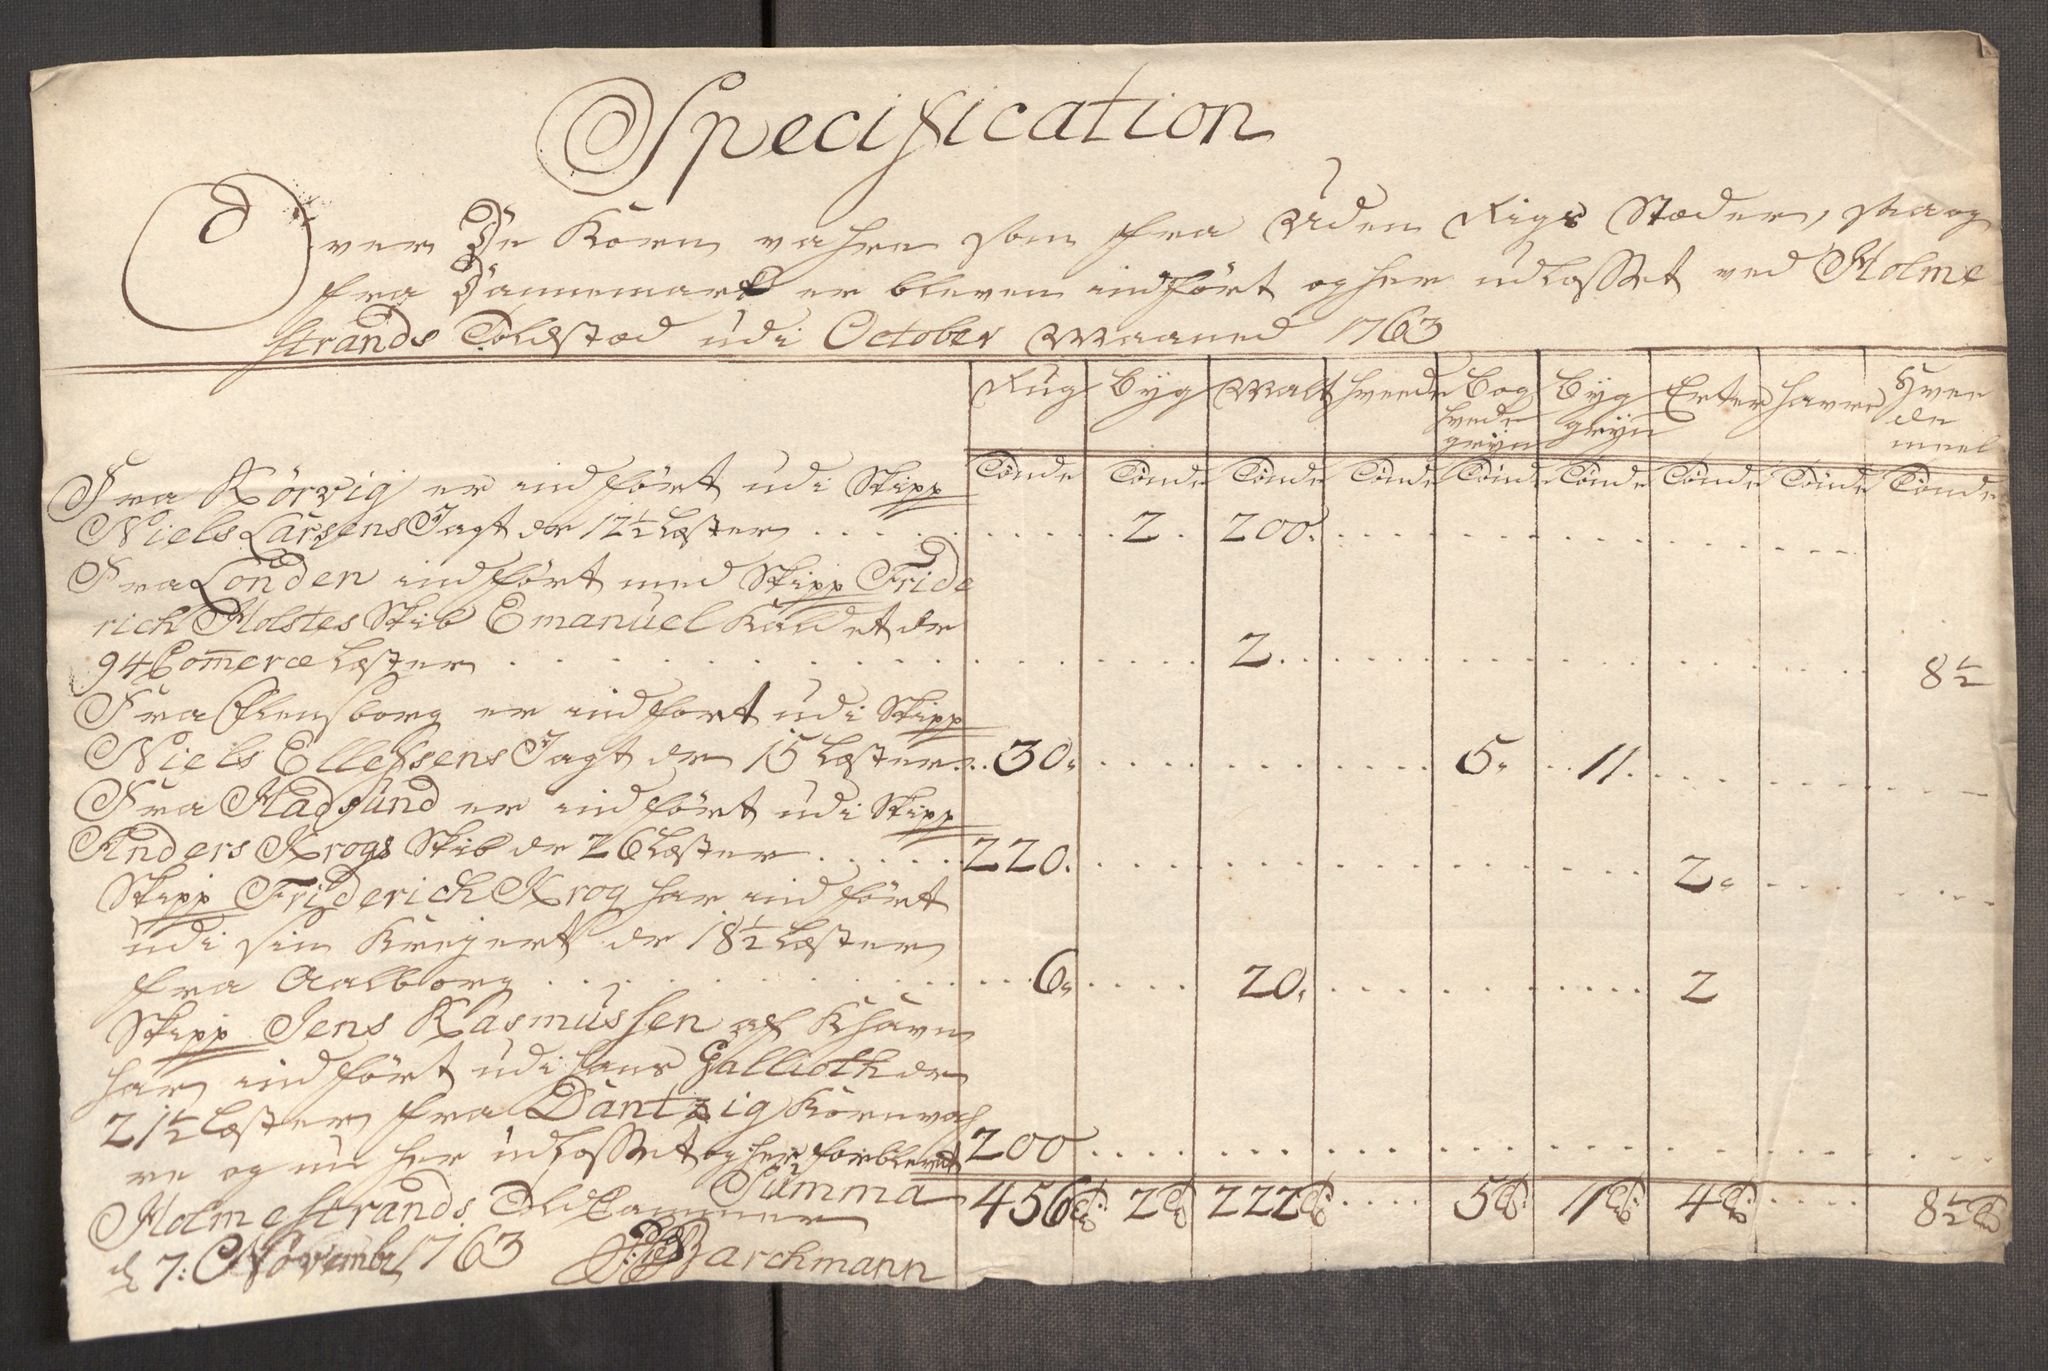 Specification
Over De Korn vahre som fra Uden Rigs Stæder, saa og
fra Dannemark er bleven indført og her udlosset ved Holme
strands Toldstæd udi October Maaned 1763
Rug Byg Malt Hvede Bog hvede gryn Byg gryn Erter Havre Hvee de meel
Tønde Tønde Tønde Tønde Tønde Tønde Tønde Tønde Tønde
Fra Rörvig er indført udi Skipp
Niels Larsens Jagt dr 12½ Læster 2 200
Fra London indført med Skipp Fride
rich Holstes Skib Emanuel Kaldet dr
94 Commerce Læster 2 8½
Fra Flensborg er indført udi Skipp
Niels Ellefsens Jagt dr 15 Læster 30 5 11
Fra Hadsund er indført udi Skipp
Anders Krogs Skib dr 26 Læster 220 2
Skipp Friderich Krog har indført
udi sin Krejert dr 18½ Læster
fra Aalborg 6 20 2
Skipp Jens Rasmussen af Khavn
har indført udi hans Gallioth dr
21½ Læster fra Dantzig Kornvah
re og nu her udlosset og her forblevet 200
Summa 456 T 2 T 222 T 5 T 11 T 4 T 8½ T
Holmestrands Toldkammer
d 7: Novembr 1763 Barchmann